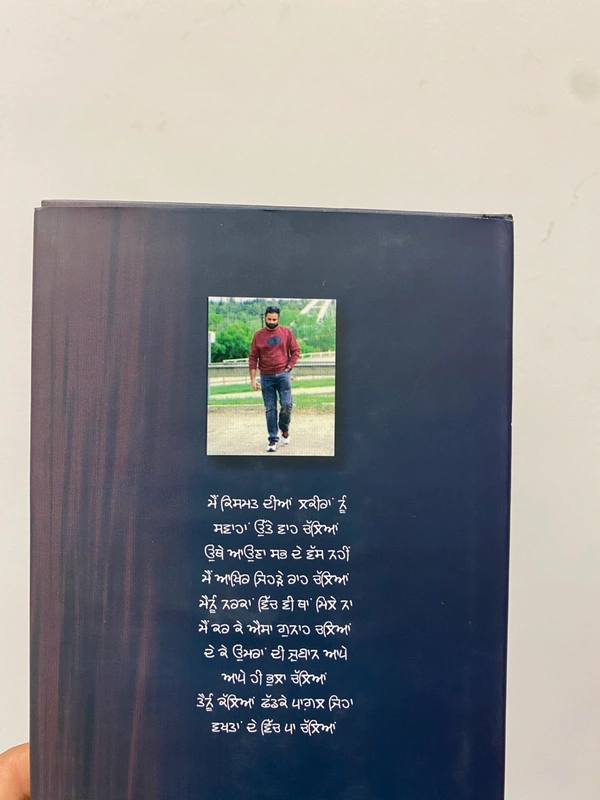 ਮੈਂ ਕਿਸਮਤ ਦੀਆਂ ਲਕੀਰਾਂ ਨੂੰ
ਸਵਾਹਾਂ ਉੱਤੇ ਵਾਹ ਚੱਲਿਆਂ
ਉਥੇ ਆਉਣਾ ਸਭ ਦੇ ਵੱਸ ਨਹੀਂ
ਮੈਂ ਆਖ਼ਿਰ ਜਿਹੜੇ ਰਾਹ ਚੱਲਿਆਂ
ਮੈਨੂੰ ਨਰਕਾਂ ਵਿੱਚ ਵੀ ਥਾਂ ਮਿਲੇ ਨਾ
ਮੈਂ ਕਰ ਕੇ ਐਸਾ ਗੁਨਾਹ ਚਲਿਆਂ
ਦੇ ਕੇ ਉਮਰਾਂ ਦੀ ਜ਼ੁਬਾਨ ਆਪੇ
ਆਪੇ ਹੀ ਭੁਲਾ ਚੱਲਿਆਂ
ਤੈਨੂੰ ਕੱਲਿਆਂ ਛੱਡਕੇ ਪਾਗਲ ਜਿਹਾ
ਵਖਤਾਂ ਦੇ ਵਿੱਚ ਪਾ ਚੱਲਿਆਂ